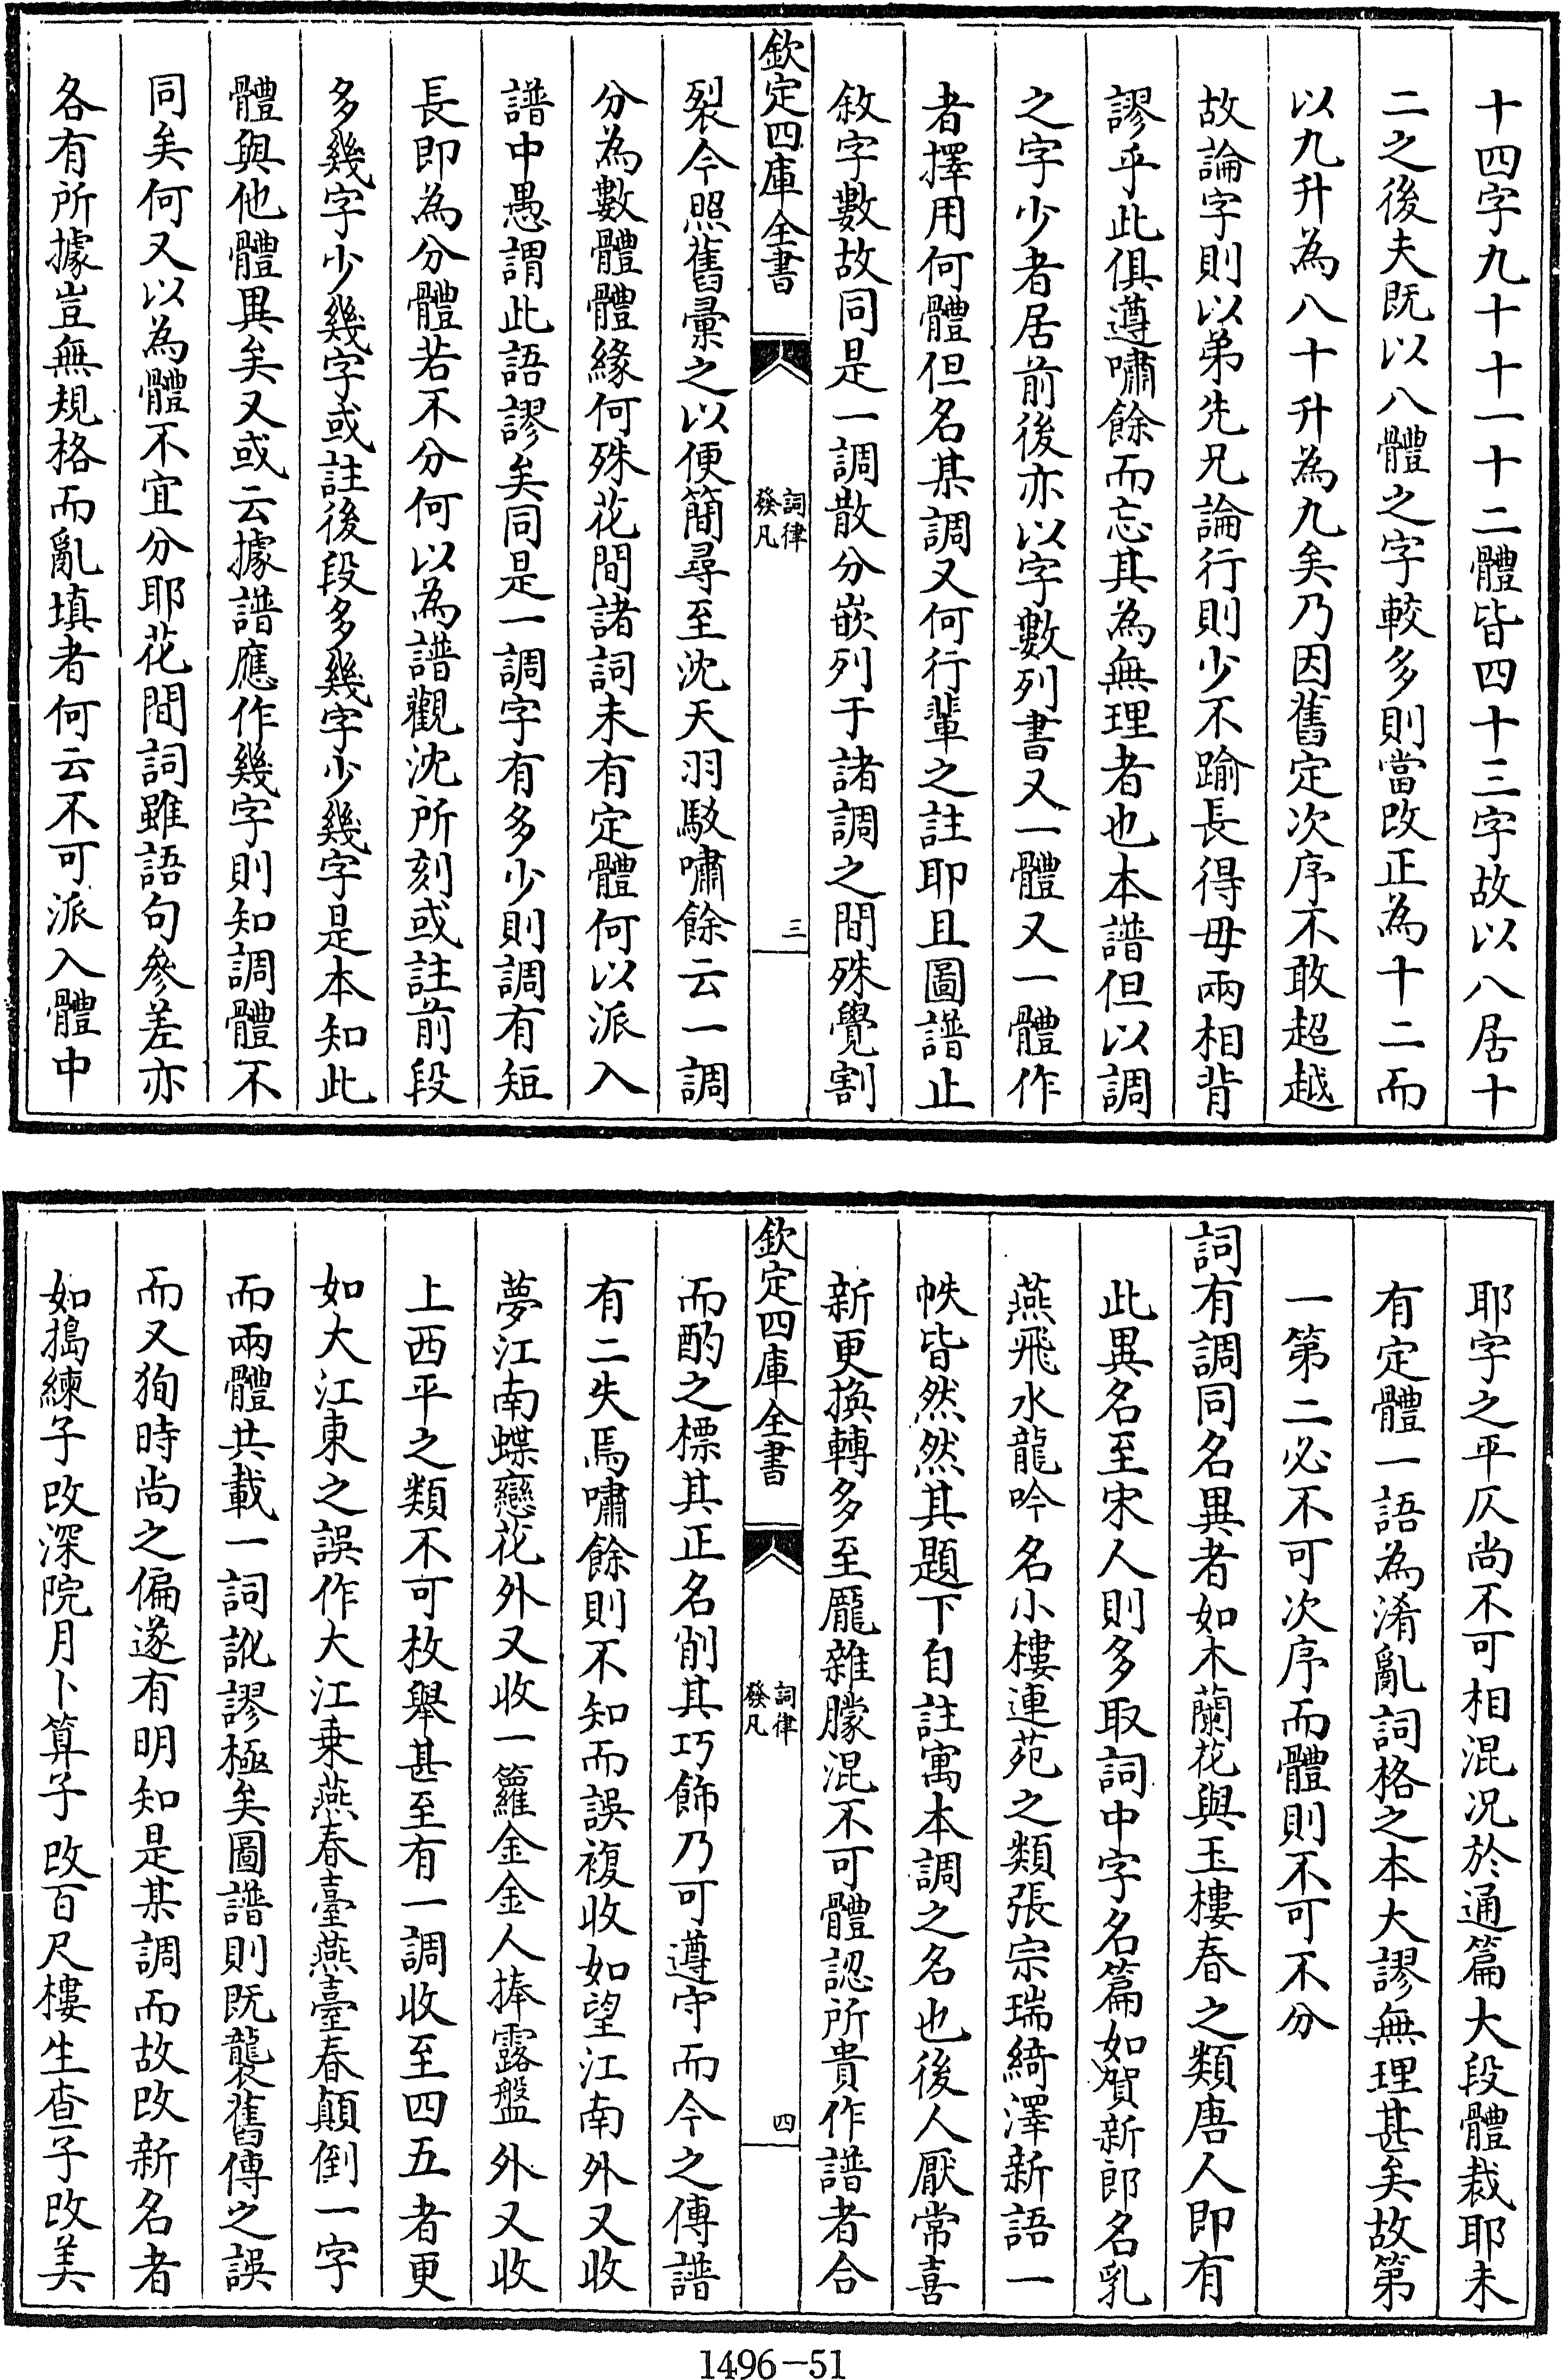 十四字九十十一十二體皆四十三字故以八居十
二之後夫既以八體之字較多則當改正為十二而
以九升為八十升為九矣乃因舊定次序不敢超越
故論字則以弟先兄論行則少不踰長得毋兩相背
謬乎此俱遵嘯餘而忘其為無理者也本譜但以調
之字少者居前後亦以字數列書又一體又一體作
者擇用何體但名某調又何行輩之註耶且圖譜止
敘字數故同是一調散分嵌列于諸調之間殊覺割
欽定四庫全書
詞律
發凡
三
裂今照舊彙之以便簡尋至沈天羽駁嘯餘云一調
分為數體體緣何殊花間諸詞未有定體何以派入
譜中愚謂此語謬矣同是一調字有多少則調有短
長即為分體若不分何以為譜觀沈所刻或註前段
多幾字少幾字或註後段多幾字少幾字是本知此
體與他體異矣又或云據譜應作幾字則知調體不
同矣何又以為體不宜分耶花間詞雖語句參差亦
各有所據豈無規格而亂填者何云不可派入體中
耶字之平仄尚不可相混况於通篇大段體裁耶未
有定體一語為淆亂詞格之本大謬無理甚矣故第
一第二必不可次序而體則不可不分
詞有調同名異者如木蘭花與玉樓春之類唐人即有
此異名至宋人則多取詞中字名篇如賀新郎名乳
燕飛水龍吟名小樓連苑之類張宗瑞綺澤新語一
帙皆然然其題下自註寓本調之名也後人厭常喜
新更換轉多至龐雜朦混不可體認所貴作譜者合
欽定四庫全書
詞律
發凡
四
而酌之標其正名削其巧飾乃可遵守而今之傳譜
有二失焉嘯餘則不知而誤複收如望江南外又收
夢江南蝶戀花外又收一籮金金人捧露盤外又收
上西平之類不可枚舉甚至有一調收至四五者更
如大江東之誤作大江乗燕春臺燕臺春顛倒一字
而兩體共載一詞訛謬極矣圖譜則既襲舊傳之誤
而又狥時尚之偏遂有明知是某調而故改新名者
如搗練子改深院月卜算子改百尺樓生查子改美
1496-51